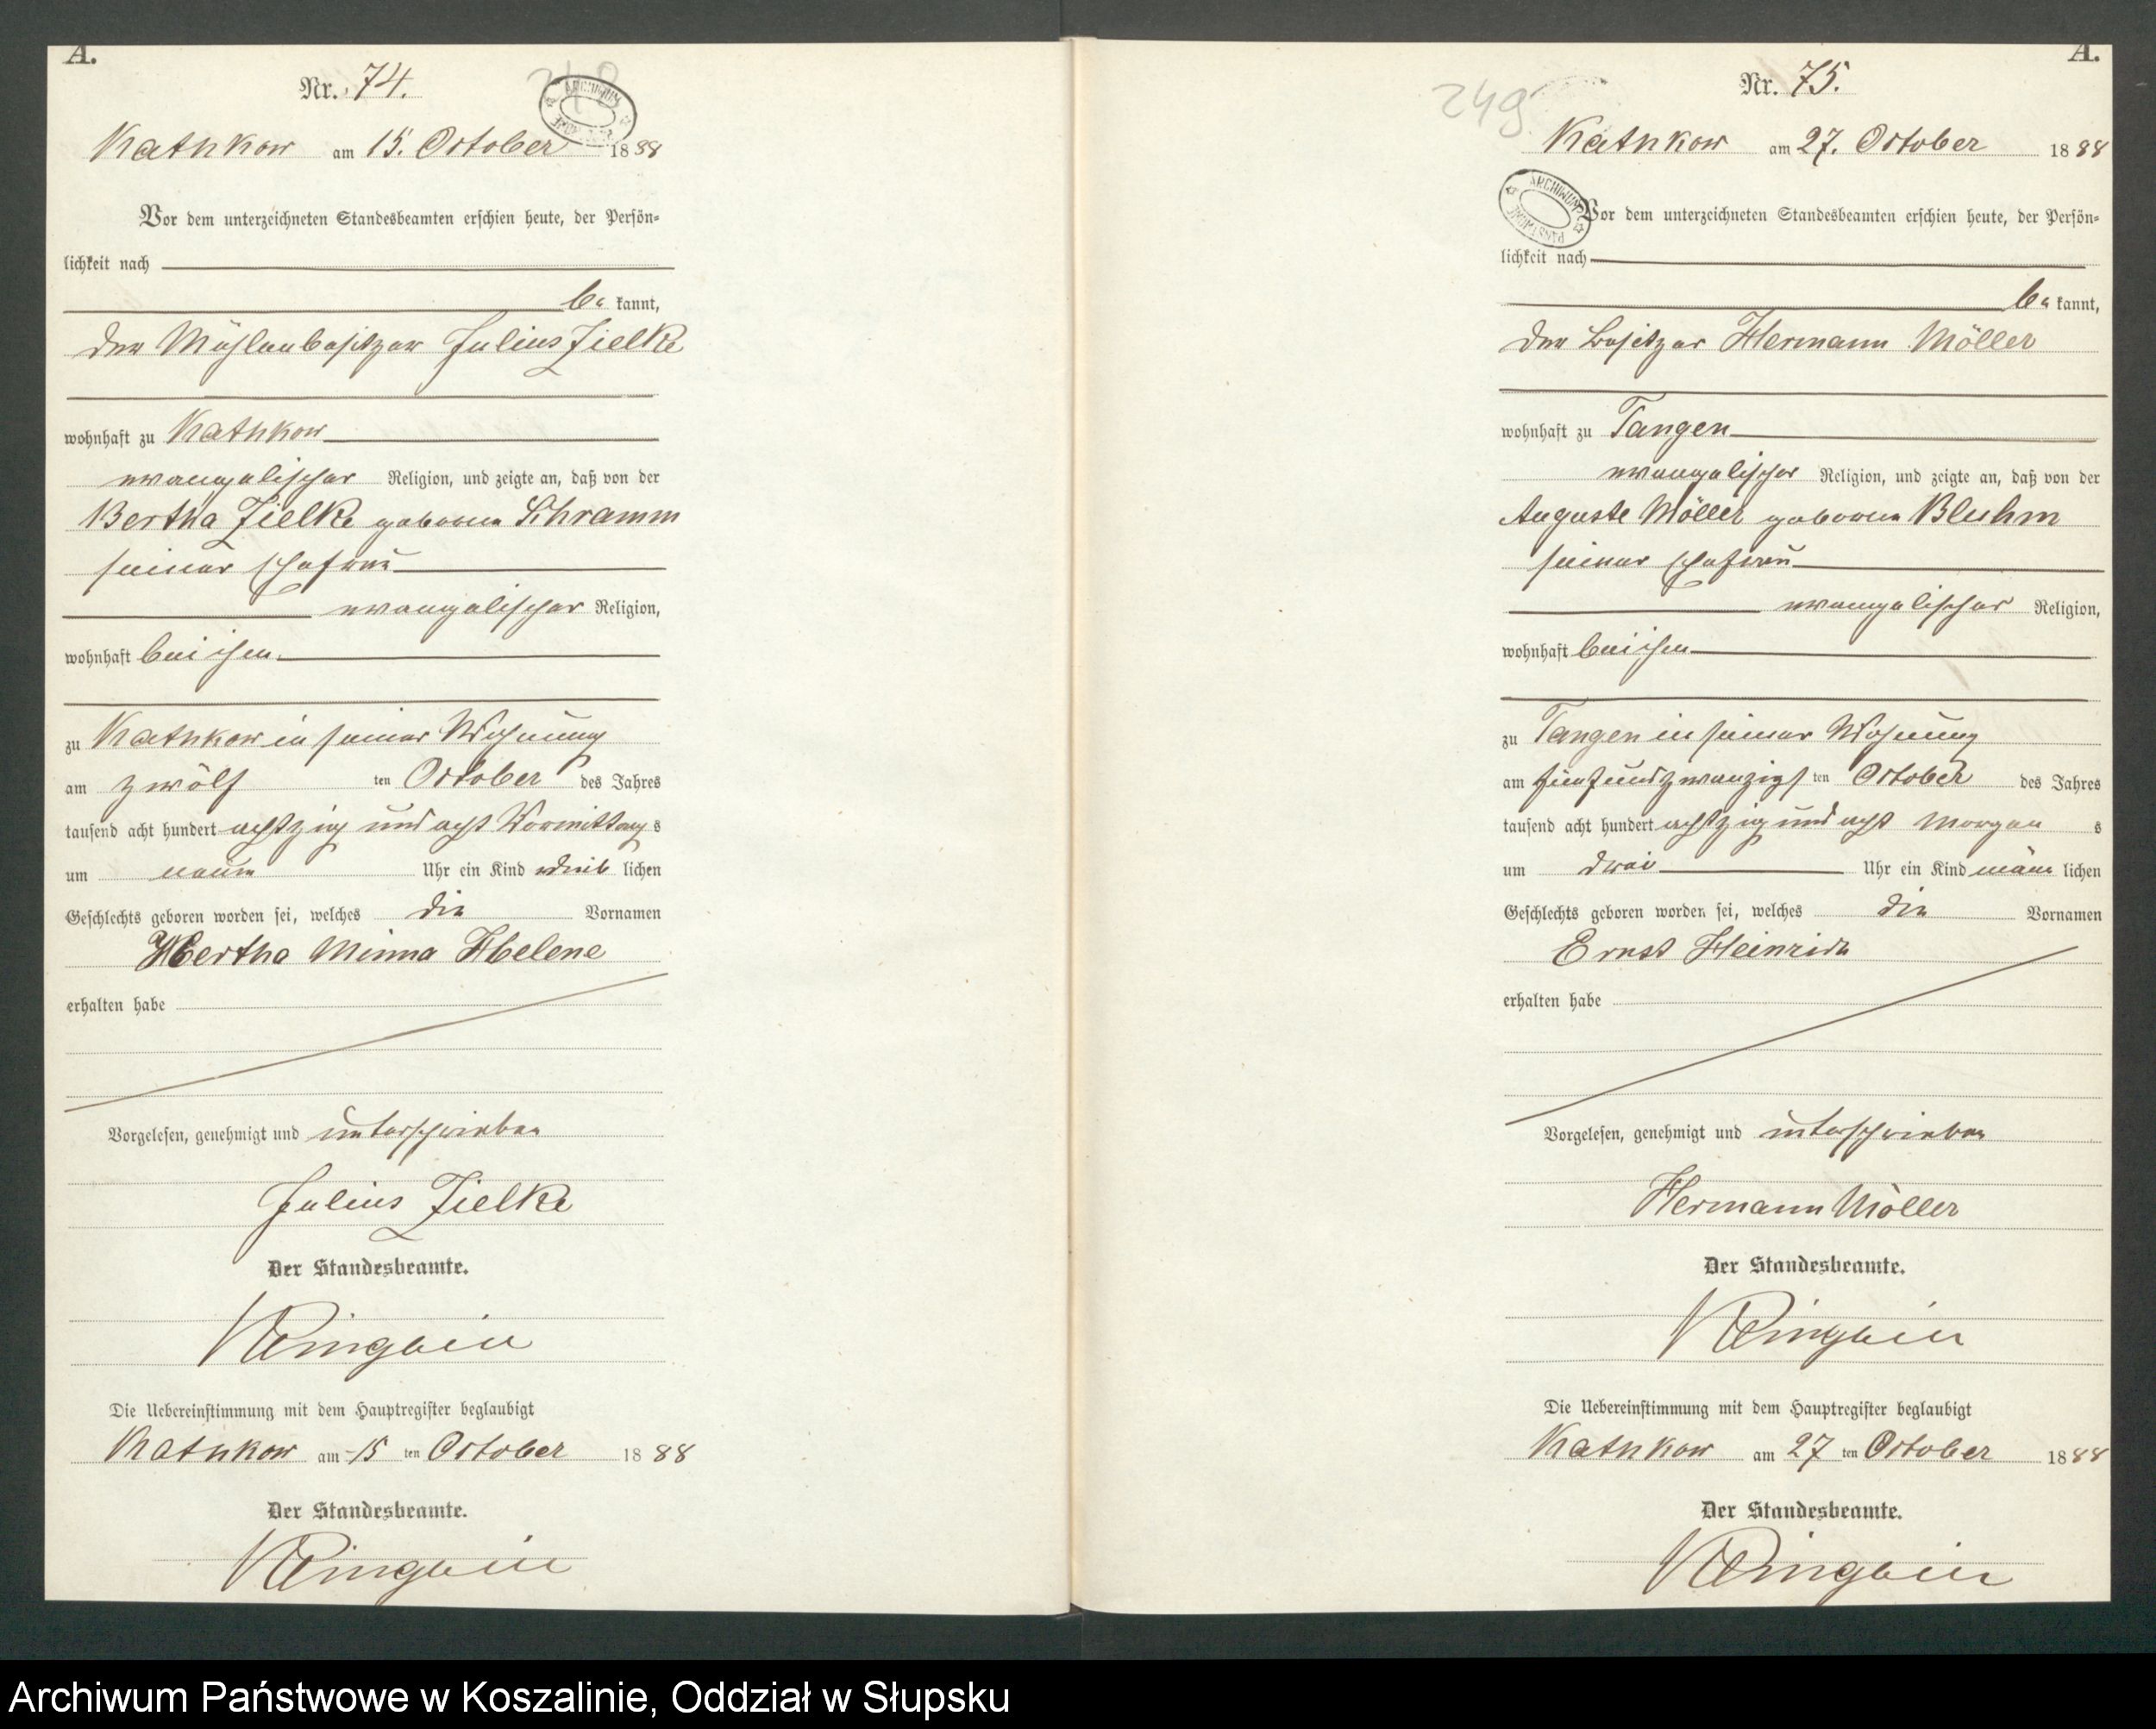 A.
Nr. 74.
248
ARCHIWUM
Kathkow am 15. October 1888
Vor dem unterzeichneten Standesbeamten erschien heute, der Persön=
lichkeit nach
be kannt,
der Mühlenbesitzer Julius Zielke
wohnhaft zu Kathkow
evangelischer Religion, und zeigte an, daß von der
Bertha Zielke geborene Schramm
seiner Ehefrau
evangelischer Religion,
wohnhaft bei ihm
zu Kathkow in seiner Wohnung
am zwölf ten October des Jahres
tausend acht hundert achtzig und acht Vormittag s
um neun Uhr ein Kind weib lichen
Geschlechts geboren worden sei, welches die Vornamen
Hertha Minna Helene
erhalten habe
Vorgelesen, genehmigt und unterschrieben
Julius Zielke
Der Standesbeamte.
Die Uebereinstimmung mit dem Hauptregister beglaubigt
Kathkow am 15 ten October 1888
Der Standesbeamte.
A.
Nr. 75.
249
Kathkow am 27. October 1888
ARCHIWUM PAŃSTWOWE
Vor dem unterzeichneten Standesbeamten erschien heute, der Persön=
lichkeit nach
be kannt,
der Besitzer Hermann Möller
wohnhaft zu Tangen
evangelischer Religion, und zeigte an, daß von der
Auguste Möller geborene Bluhm
seiner Ehefrau
evangelischer Religion,
wohnhaft bei ihm
zu Tangen in seiner Wohnung
am fünfundzwanzigs ten October des Jahres
tausend acht hundert achtzig und acht Morgen s
um drei Uhr ein Kind männ lichen
Geschlechts geboren worden sei, welches die Vornamen
Ernst Heinrich
erhalten habe
Vorgelesen, genehmigt und unterschrieben
Hermann Möller
Der Standesbeamte.
Die Uebereinstimmung mit dem Hauptregister beglaubigt
Kathkow am 27 ten October 1888
Der Standesbeamte.
Archiwum Państwowe w Koszalinie, Oddział w Słupsku